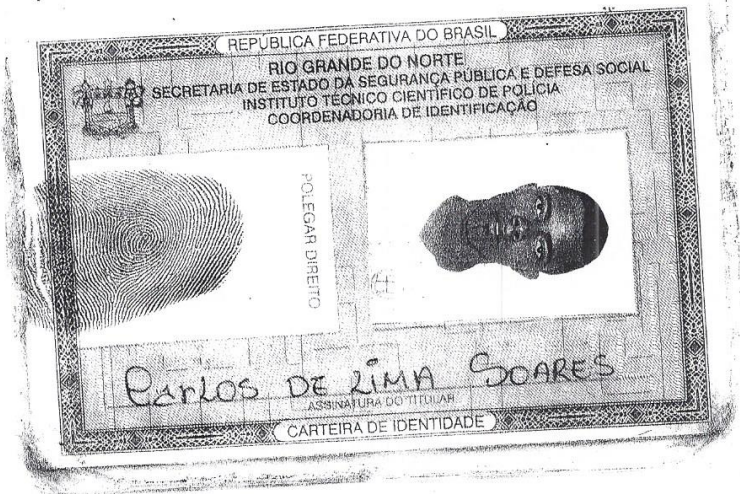 REPÚBLICA FEDERATIVA DO BRASIL
RIO GRANDE DO NORTE
SECRETARIA DE ESTADO DA SEGURANÇA PÚBLICA E DEFESA SOCIAL
INSTITUTO TÉCNICO CIENTÍFICO DE POLÍCIA
COORDENADORIA DE IDENTIFICAÇÃO
POLEGAR DIREITO
CARLOS DE LIMA SOARES
ASSINATURA DO TITULAR
CARTEIRA DE IDENTIDADE